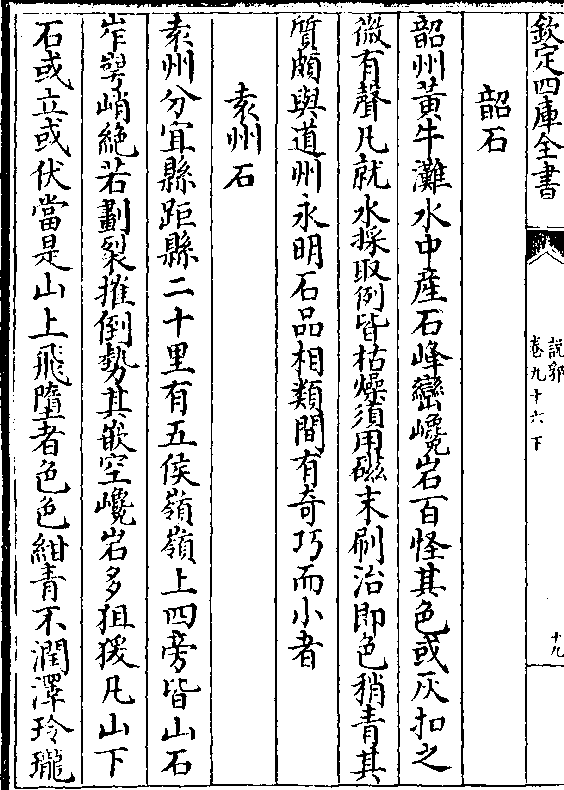 欽定四庫全書
說郛
卷九十六下
十九
韶石
韶州黃牛灘水中産石峰巒巉岩百怪其色或灰扣之
微有聲凡就水採取例皆枯燥須用磁末刷治即色稍青其
質頗與道州永明石品相類間有奇巧而小者
袁州石
袁州分宜縣距縣二十里有五侯嶺嶺上四旁皆山石
岝崿峭絶若劃裂摧倒勢其嵌空巉岩多狙猨凡山下
石或立或伏當是山上飛墮者色色紺青不潤澤玲瓏